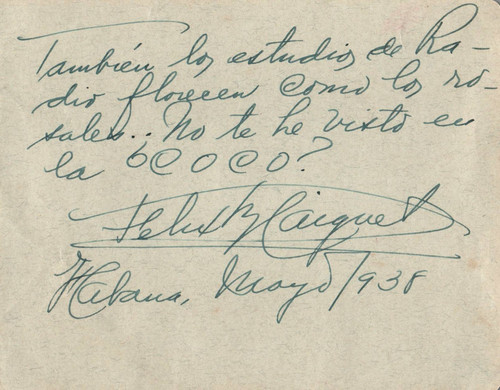 También los estudios de Ra-
dio florecen como los ro-
sales.. No te he visto en
la COCO?
Felix B Caignet
Habana, Mayo/938